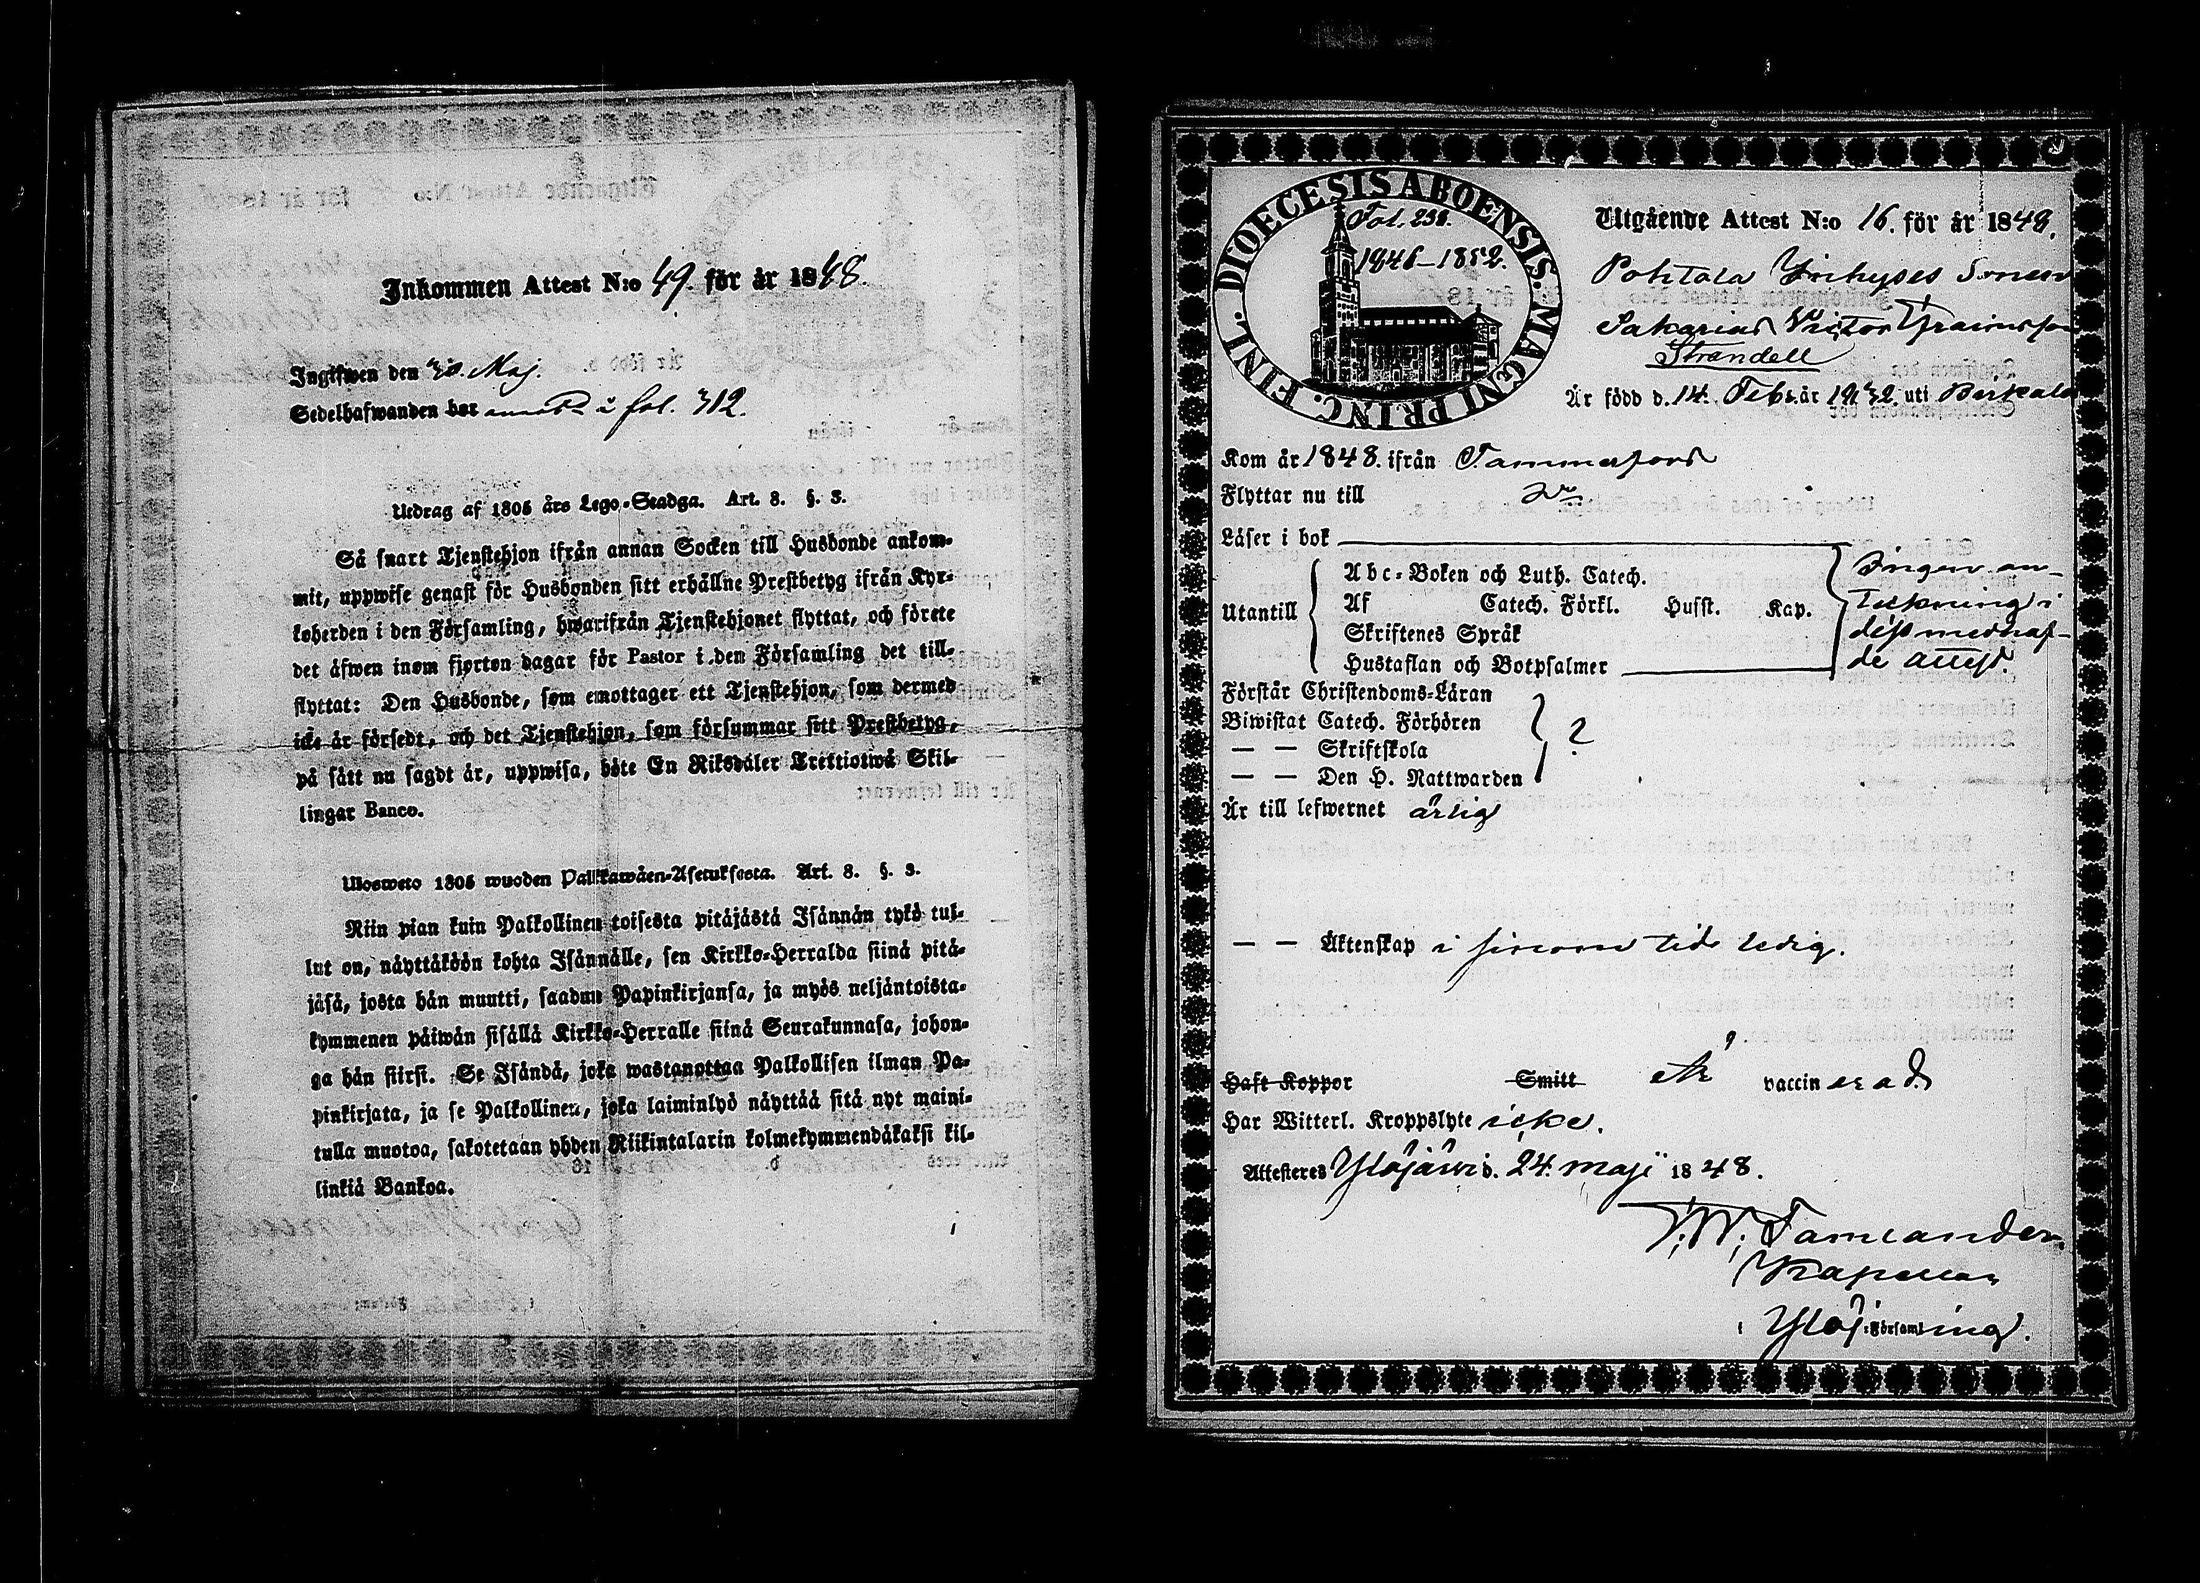 Inkommen Attest N:o 49. för år 1848.
Ingifwen den 30. Maj.
Sedelhafwanden bor i fol. 312.
Utdrag af 1805 års Lego-Stadga. Art. 8. §. 3.
Så snart Tjenstehjon ifrån annan Socken till Husbonde ankom-
mit, uppwise genast för Husbonden sitt erhållne Prestbetyg ifrån Kyr-
koherden i den Församling, hwarifrån Tjenstehjonet flyttat, och förete
det äfwen inom fjorton dagar för Pastor i den Församling det till-
flyttat: Den Husbonde, som emottager ett Tjenstehjon, som dermed
icke är försedt, och det Tjenstehjon, som försummar sitt Prestbetyg,
på sätt nu sagdt är, uppwisa, böte En Riksdaler Trettiotwå Skil-
lingar Banco.
Ulosweto 1805 wuoden Palkkawäen-Asetuksesta. Art. 8. §. 3.
Niin pian kuin Palkollinen toisesta pitäjästä Isännän tykö tul-
lut on, näyttäköön kohta Isännälle, sen Kirkko-Herralda siinä pitä-
jäsä, josta hän muutti, saadun Papinkirjansa, ja myös neljäntoista-
kymmenen päiwän sisällä Kirkko-Herralle siinä Seurakunnasa, johon-
ga hän siirsi. Se Isändä, joka wastanottaa Palkollisen ilman Pa-
pinkirjata, ja se Palkollinen, joka laiminlyö näyttää sitä nyt maini-
tulla muotoa, sakotetaan yhden Riikintalarin kolmekymmendäkaksi kil-
linkiä Bankoa.
DIOECESIS ABOENSIS. MAGNI PRINC. FINL.
Fol. 238.
1846-1852.
Utgående Attest N:o 16. för år 1848.
Pohtola Sonen
Sakarias Victor
Strandell
Är född d. 14. Feb. år 1832. uti Birkala
Kom år 1848. ifrån Tammerfors
Flyttar nu till
Läser i bok
Utantill
Abc-Boken och Luth. Catech.
Af Catech. Förkl. Husst. Kap.
Skriftenes Språk
Hustaflan och Botpsalmer
Ingen an-
teckning i
dess medhaf-
de attest.
Förstår Christendoms-Läran
Biwistat Catech. Förhören
— — Skriftskola
— — Den H. Nattwarden
?
Är till lefwernet ärlig
— — Äktenskap i sinom tid ledig.
Haft Koppor Smitt Är vaccinerad.
Har Witterl. Kroppslyte icke.
Attesteras Ylöjärwi d. 24. maji 1848.
Tamlander.
Kapellan
i Ylöj: Församling.